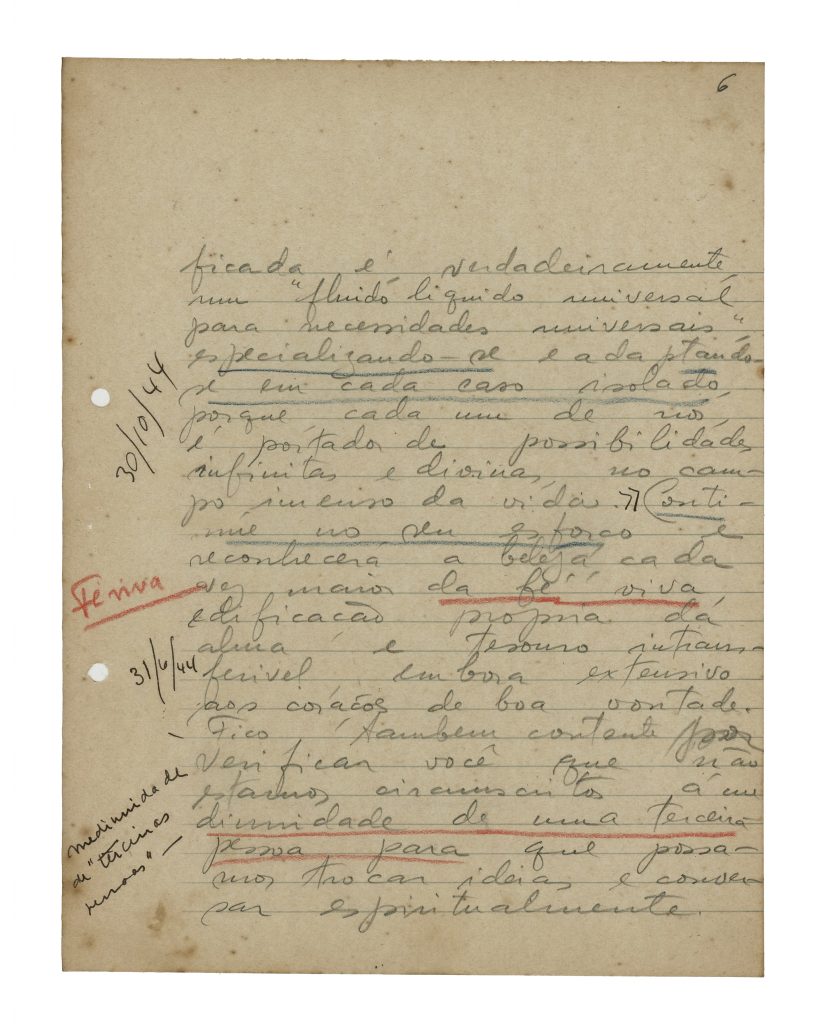 6
ficada é verdadeiramente
um "fluido liquido universal
para necessidades universais",
especializando-se e adaptando-
se em cada caso isolado,
porque cada um de nós,
é portador de possibilidades
infinitas e divinas, no cam-
po imenso da vida. Conti-
nue no seu esforço e
reconhecerá a beleza cada
vez maior da fé viva,
edificação propria da
alma e tesouro intrans-
ferivel embora extensivo
aos corações de boa vontade.
Fico tambem contente por
verificar você que não
estamos circunscritos á me
diunidade de uma terceira
pessoa para que possa-
mos trocar ideias e conver-
sar espiritualmente.
30/10/44
Fé viva
31/6/44
mediunidade
de "terceiras